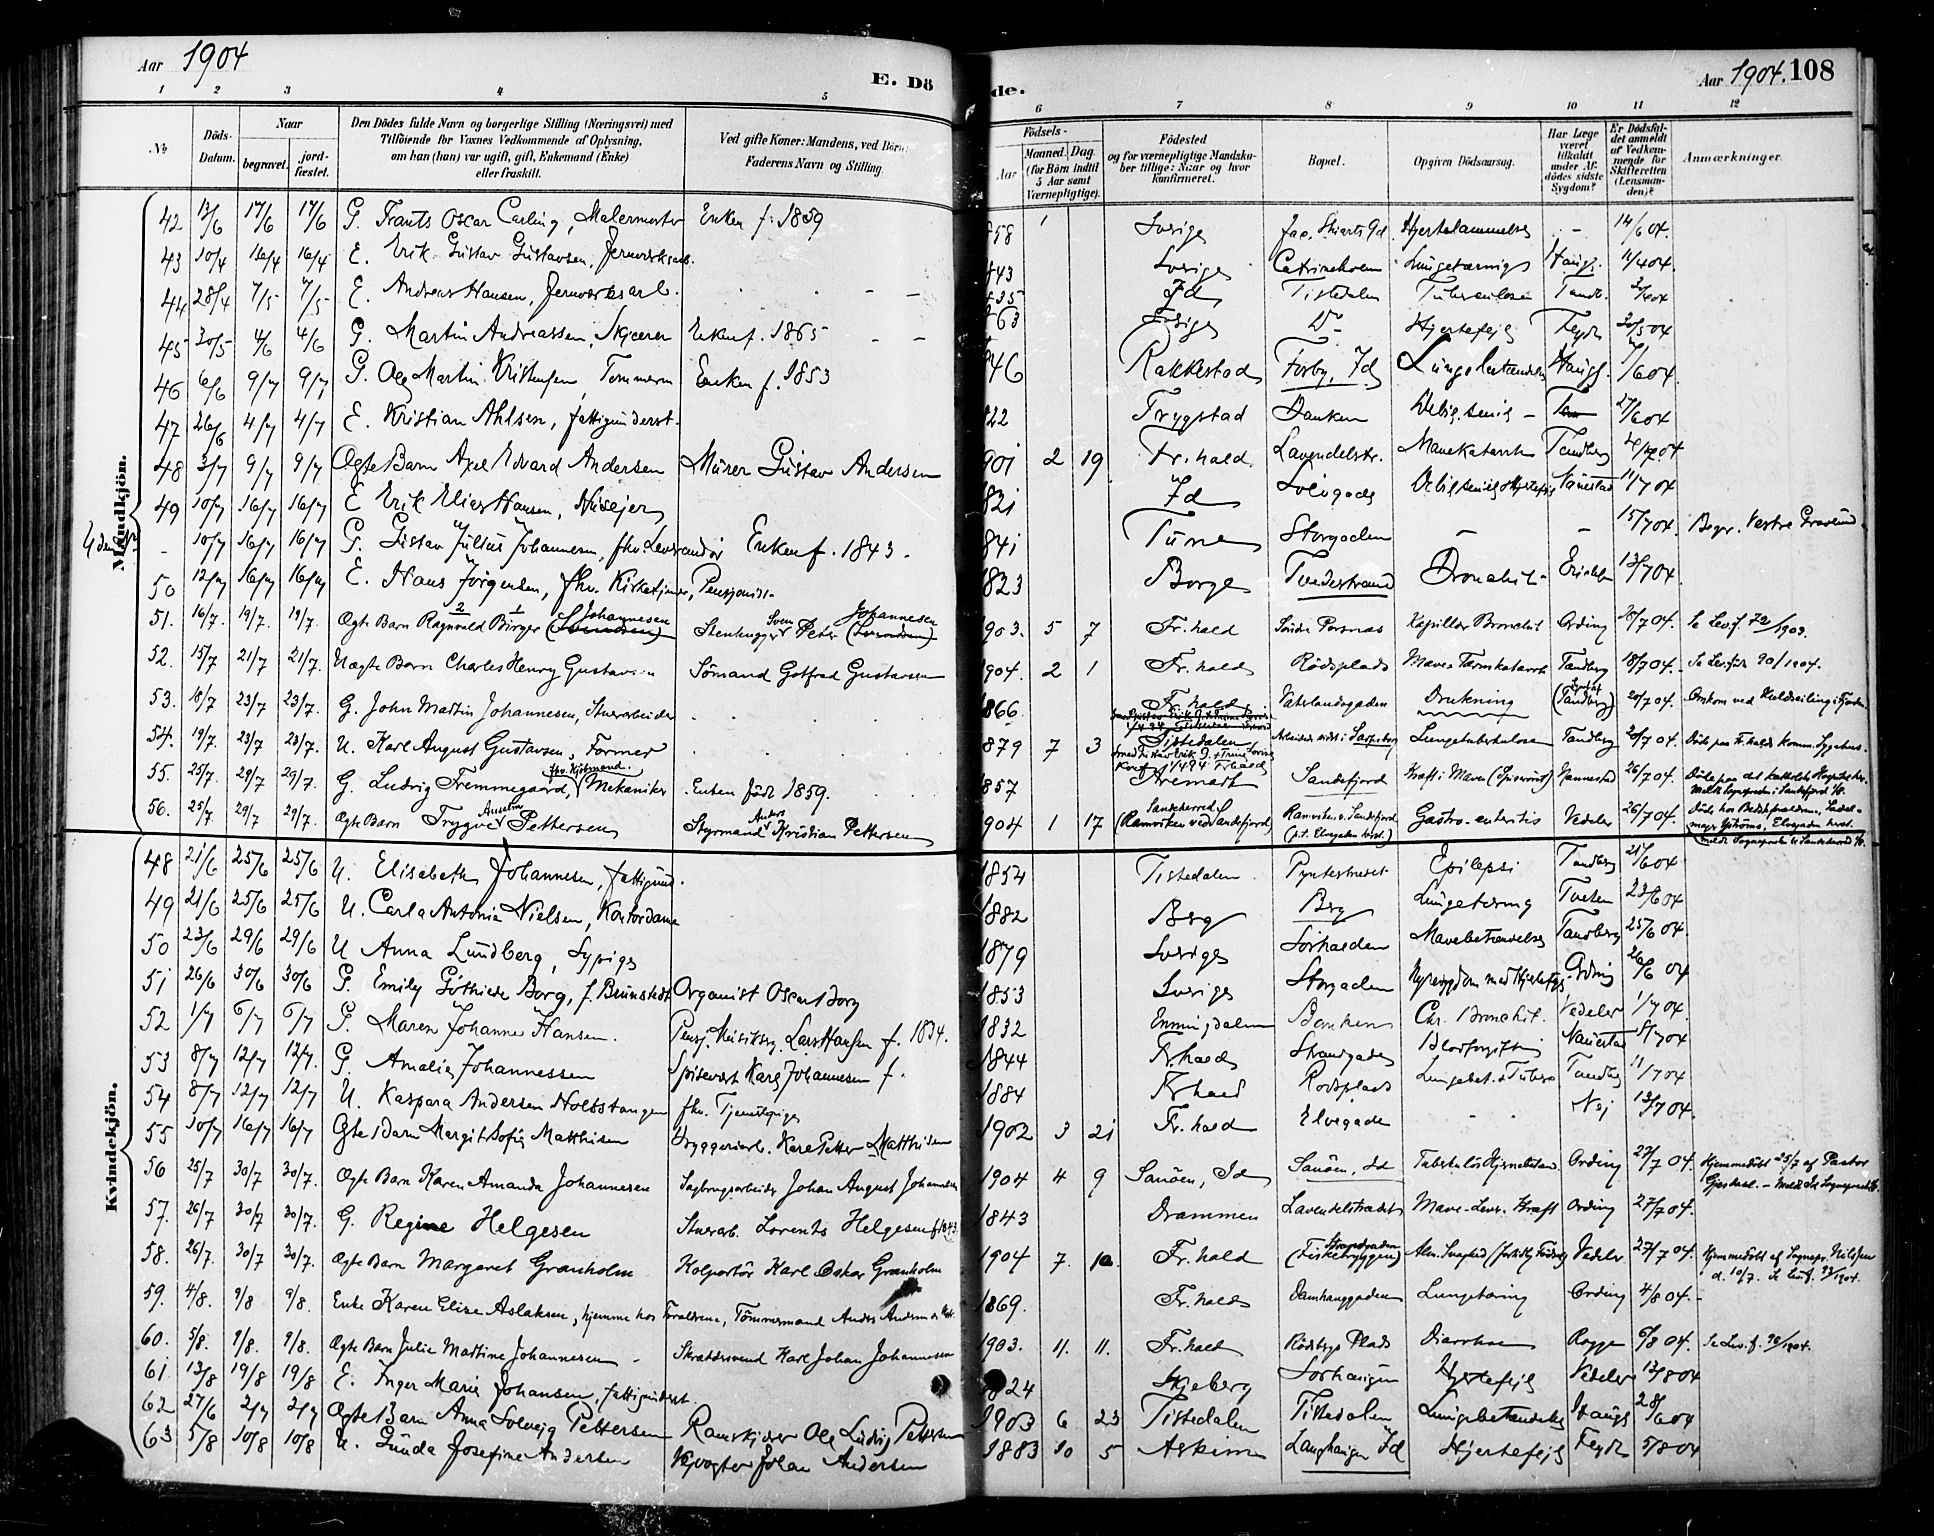 Aar 1904
E. Dö
de.
Aar 1904. 108
1 2 3 4 5 6 7 8 9 10 11 12
No
Döds-Datum.
Naar
begravet.
jord-fæstet.
Den Dödes fulde Navn og borgerlige Stilling (Næringsvei) med
Tilföiende for Voxnes Vedkommende af Oplysning,
om han (hun) var ugift, gift, Enkemand (Enke)
eller fraskilt.
Ved gifte Koner: Mandens, ved Börn:
Faderens Navn og Stilling.
Födsels-
Aar
Maaned. Dag.
(for Börn indtil
5 Aar samt
Værnepligtige).
Födested
og for værnepligtige Mandska-
ber tillige: Naar og hvor
konfirmeret.
Bopæl.
Opgiven Dödsaarsag.
Har Læge
været
tilkaldt
under Af-
dödes sidste
Sygdom?
Er Dödsfal-
det anmeldt
af Vedkom-
mende for
Skifteretten
(Lensman-
den)?
Anmærkninger.
Mandkjön.
42 13/6 17/6 17/6 G. Frants Oscar Carling, Malermester Enken f. 1859 858 Sverige Hjertelammelse - 14/6 04.
43 10/4 16/4 16/4 E. Erik Gustav Gustavsen, Jernverksarb. 843 Sverige Catrineholm Lungetæring Haugs. 11/4 04.
44 28/4 7/5 7/5 E. Andreas Hansen, Jernverksarb. 835 Id Tistedalen Tuberculose Tandb.
45 30/5 4/6 4/6 G. Martin Andreassen, Skjærer Enken f. 1865 863 Sverige Do Hjertefejl Feydt 30/5 04
46 6/6 9/7 9/7 G. Ole Martin Kristensen Tømmerm Enken f. 1853 846 Rakkestad Torby, Id Lungebetændelse Haugs. 7/6 04.
47 26/6 4/7 4/7 E. Kristian Ahlsen, fattigunderst. 822 Trygstad Banken Debig. senil - 27/6 04
48 3/7 9/7 9/7 Ægte Barn Axel Edvard Andersen Murer Gustav Andersen 901 2 19 Fr.hald Lavendelstr. Mavekatarrh Tandberg 4/7 04
49 10/7 16/7 16/7 E Erik Elias Hansen, Husejer 821 Id Solvgade Debil. senil. Hjertefejl Nauestad 11/7 04
Uden No - 10/7 16/7 16/7 G. Gustav Julius Johannesen, fhv. Leverandør Enken f. 1843. 841 Tune Storgaden - - 15/7 04. Begr. Vestre Gravlund.
50 12/7 16/7 16/7 E. Hans Jørgensen, fhv. Kirketjener, Pensjonist. 823 Borge Tvedestrand Bronchit. Erichsen 13/7 04.
51. 16/7. 19/7. 19/7. Ægte Barn Ragnvald Birger (Svendsen) Johannesen Stenhugger Sven Peter (Svendsen) Johannesen 903. 5 7 Fr.hald Søndre Porsnas Kapillær Bronchit Ording 20/7 04. Se Lev.f. 72/1903.
52. 15/7 21/7 21/7. Uægte Barn Charles Henry Gustavsen Sömand Gotfred Gustavsen 1904. 2 1 Fr.hald Rødsplads Mave-Tarmkatarrh Tandberg 18/7 04. Se Lev.föd. 90/1904.
53. 18/7 23/7 23/7. G. John Martin Johannesen, Stuerarbeider 866. Fr.hald Vaterlandsgaden Drukning (Tandberg) 20/7 04. Omkom ved Kuldseiling i Fjorden.
54. 19/7. 23/7 23/7. U. Karl August Gustavsen, Former 879 7 3 Tistedalen Arbeidede sidst i Sarpsborg Lungetuberkulose Tandberg 20/7 04. Döde paa Fr.halds Komm. Sygehus.
55. 25/7. 29/7 29/7. G. Ludvig Fremmegaard, fhv. Kjöbmand, Mekaniker Enken född 1859. 857 Aremark Sandefjord Kræft i Maven (Spiserør) Hannestad 26/7 04. Döde paa det katholske Hospital her. Meldt Sogneprsten i Sandefjord
56. 25/7. 29/7 29/7. Ægte Barn Trygve Anselm Pettersen Styrmand Anders Kristian Pettersen 904 1 17 Sandeherred (Ramvik ved Sandefjord) Ramvik v. Sandefjord (p.t. Elvegaden herst.) Gastro-enteritis Vedeler 26/7 04. Döde hos Bedsteforældrene, Elvegaden herst. Meldt Sogneprsten i Sandeherred
Kvindekjön.
48 21/6 25/6 25/6 U. Elisabeth Johannesen, fattigund. 1854 Tistedalen Epilepsi Tandberg 21/6 04
49 21/6 25/6 25/6 U. Carla Antonia Nielsen, Kontordame 1882 Berg Berg Lungetæring Tveten 23/6 04
50 23/6 29/6 29/6 U Anna Lundberg, Sypige 1879 Sverige Sørhalden Mavebetændelse Tandberg 25/6 04.
51 26/6 30/6 30/6 G. Emily Gothilde Borg, f. Brunstedt Organist Oscar Borg 1853 Sverige Storgaden Nyresygdom med Hjertefejl Ording 26/6 04
52 1/7 6/7 6/7 G. Maren Johanne Hansen. Pensj. Musiksg. Lars Hansen f. 1834. 1832 Enningdalen Banken Chr. Bronchit. Vedeler 1/7 04.
53 8/7 12/7 12/7. G. Amalie Johannessen Spisevert Karl Johannesen f. 1844 Fr.hald Strandgaden Blodforgiftning Nauestad 8/7 04
54 8/7 12/7 12/7 U. Kaspara Andersen Holtstangen fhv. Tjenestepige 1884 Fr.hald Rødsplads Lungebet. + Tuberc Tandberg 11/7 04
55 10/7 16/7 16/7 Ægte Barn Margit Sofie Matthisen Bryggeriarb. Karl Petter Matthisen 1902 3 21 Fr.hald Elvegade - - Nej 13/7 04.
56 25/7 30/7 30/7. Ægte Barn Karen Amanda Johannesen Sagbrugsarbeider Johan August Johannesen 1904 4 9 Sauöen, Id Sauöen, Id Tuberkulös Hjernebetænd. Ording 27/7 04. Hjemmedöbt 25/7 af Pastor
57. 26/7 30/7 30/7. G. Regine Helgesen Stuerarb. Lorents Helgesen f. 1843. 1843 Drammen Lavendelstrædet Mave-Lever Kræft Ording 27/7 04.
58. 26/7. 30/7 30/7. Ægte Barn Margaret Granholm Kolportör Karl Oskar Granholm 1904 7. 10. Fr.hald Strandgaden (Fiskebryggen) Alm. Svaghed (for tidlig Födsel) Vedeler 27/7 04. Hjemmedöbt af Sognepr. Nilssen d. 10/7. Se Lev.f. 93/1904.
59. 4/8. 9/8 9/8. Enke Karen Elise Aslaksen, hjemme hos Forældrene, Tömmermand Anders Andersen 1869. Fr.hald Damhauggaden Lungetæring Ording 4/8 04.
60. 5/8. 9/8 9/8. Ægte Barn Julie Martine Johannesen Skræddersvend Karl Johan Johannesen 1903. 11. 11. Fr.hald Rødsbergs Plads Diarrhoe Rogge 6/8 04. Se Lev.f. 96/1904.
61. 13/8 19/8 19/8 E. Inger Marie Johansen, fattigunderst. 1824 Skjeberg Sørhaugen Hjertefejl Vedeler 13/8 04
62 27/6 2/7 2/7 Ægte Barn Anna Solveig Pettersen Ramskjærer Ole Ludvig Pettersen 1903 6 23 Tistedalen Tistedalen Lungebetændelse Haugs 28/6 04
63 5/8 10/8 10/8 U. Gunda Josefine Andersen Kjvogter Johan Andersen 1883 10 5 Askim Langhaugen Id Hjertefejl Feydt 5/8 04